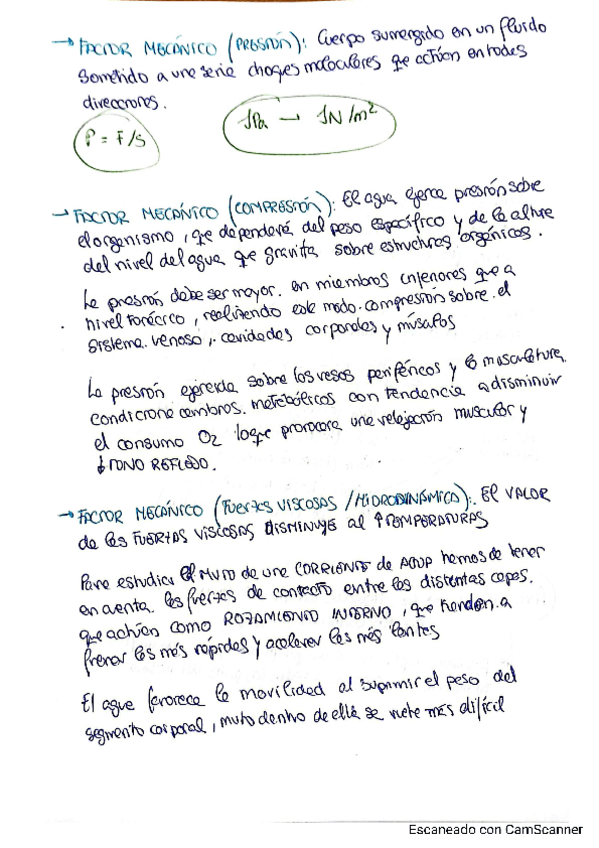 → FACTOR MECÁNICO (PRESIÓN): Cuerpo sumergido en un fluido
sometido a una serie choques moleculares que actúan en todas
direcciones.
P = F/S
1Pa → 1N/m²
→ FACTOR MECÁNICO (COMPRESIÓN): El agua ejerce presión sobre
el organismo, que dependerá del peso específico y de la altura
del nivel del agua que gravita sobre estructuras orgánicas.
La presión debe ser mayor en miembros inferiores que a
nivel torácico, realizando este modo compresión sobre el
sistema venoso, cavidades corporales y músculos
La presión ejercida sobre los vasos periféricos y la musculatura
condiciona cambios metabólicos con tendencia a disminuir
el consumo O₂ lo que provocara una relajación muscular y
↓ TONO REFLEJO.
→ FACTOR MECÁNICO (FUERZAS VISCOSAS / HIDRODINÁMICA): El VALOR
de las FUERZAS VISCOSAS DISMINUYE al ↑ TEMPERATURAS
Para estudiar el MVTO de una CORRIENTE de AGUA hemos de tener
en cuenta las fuerzas de contacto entre las distintas capas
que actúan como ROZAMIENTO INTERNO, que tienden a
frenar las más rápidas y acelerar las más lentas
El agua favorece la movilidad al suprimir el peso del
segmento corporal, mvto dentro de ella se vuelve más difícil
Escaneado con CamScanner